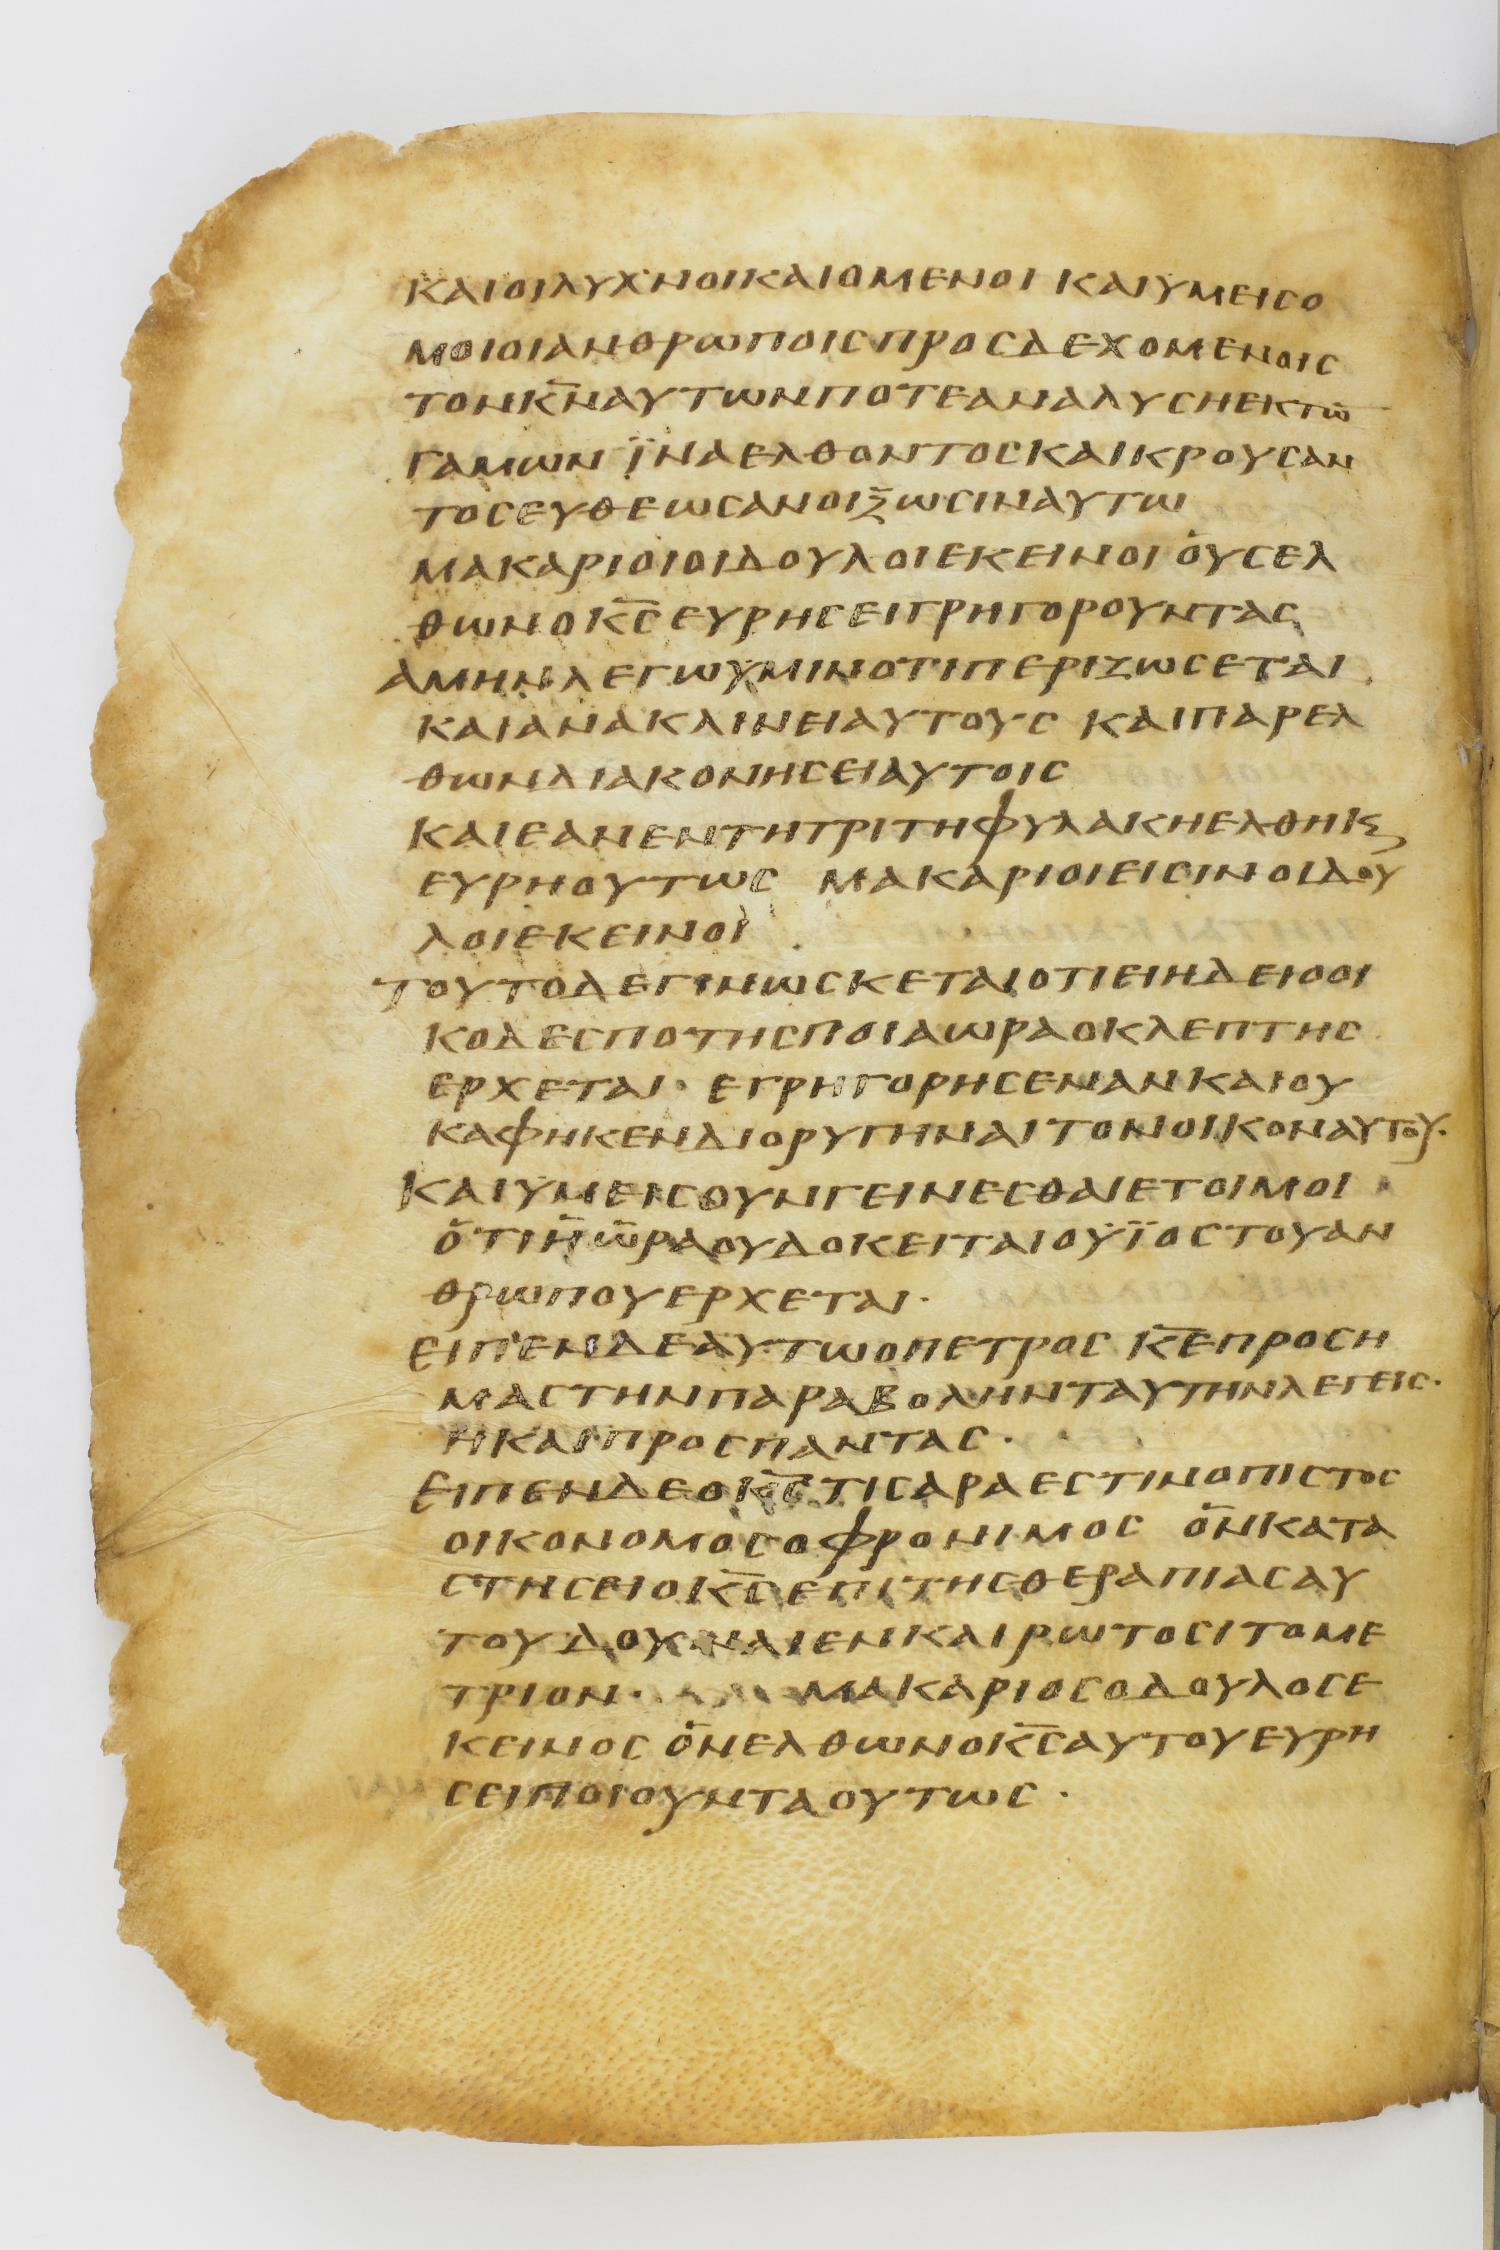 ΚΑΙΟΙΛΥΧΝΟΙΚΑΙΟΜΕΝΟΙ ΚΑΙΫΜΕΙCΟ
ΜΟΙΟΙΑΝΘΡΩΠΟΙCΠΡΟCΔΕΧΟΜΕΝΟΙC
ΤΟΝΚ̅Ν̅ΑΥΤΩΝΠΟΤΕΑΝΑΛΥCΗΕΚΤΩ̅
ΓΑΜΩΝ ΪΝΑΕΛΘΟΝΤΟCΚΑΙΚΡΟΥCΑΝ
ΤΟCΕΥΘΕΩCΑΝΟΙΞΩCΙΝΑΥΤΩ
ΜΑΚΑΡΙΟΙΟΙΔΟΥΛΟΙΕΚΕΙΝΟΙ ΟΥCΕΛ
ΘΩΝΟΚ̅C̅ΕΥΡΗCΕΙΓΡΗΓΟΡΟΥΝΤΑC
ΑΜΗΝΛΕΓΩΫΜΙΝΟΤΙΠΕΡΙΖΩCΕΤΑΙ
ΚΑΙΑΝΑΚΛΙΝΕΙΑΥΤΟΥC ΚΑΙΠΑΡΕΛ
ΘΩΝΔΙΑΚΟΝΗCΕΙΑΥΤΟΙC
ΚΑΙΕΑΝΕΝΤΗΤΡΙΤΗΦΥΛΑΚΗΕΛΘΗΚϚ
ΕΥΡΗΟΥΤΩC ΜΑΚΑΡΙΟΙΕΙCΙΝΟΙΔΟΥ
ΛΟΙΕΚΕΙΝΟΙ
ΤΟΥΤΟΔΕΓΙΝΩCΚΕΤΑΙΟΤΙΕΙΗΔΕΙΟΟΙ
ΚΟΔΕCΠΟΤΗCΠΟΙΑΩΡΑΟΚΛΕΠΤΗC
ΕΡΧΕΤΑΙ· ΕΓΡΗΓΟΡΗCΕΝΑΝΚΑΙΟΥ
ΚΑΦΗΚΕΝΔΙΟΡΥΓΗΝΑΙΤΟΝΟΙΚΟΝΑΥΤΟΥ·
ΚΑΙΫΜΕΙCΟΥΝΓΕΙΝΕCΘΑΙΕΤΟΙΜΟΙ
ΟΤΙΗΩΡΑΟΥΔΟΚΕΙΤΑΙΟΫΪΟCΤΟΥΑΝ
ΘΡΩΠΟΥΕΡΧΕΤΑΙ·
ΕΙΠΕΝΔΕΑΥΤΩΟΠΕΤΡΟC Κ̅Ε̅ΠΡΟCΗ
ΜΑCΤΗΝΠΑΡΑΒΟΛΗΝΤΑΥΤΗΝΛΕΓΕΙC·
ΗΚΑΙΠΡΟCΠΑΝΤΑC·
ΕΙΠΕΝΔΕΟΚ̅C̅ΤΙCΑΡΑΕCΤΙΝΟΠΙCΤΟC
ΟΙΚΟΝΟΜΟCΟΦΡΟΝΙΜΟC ΟΝΚΑΤΑ
CΤΗCΕΙΟΚ̅C̅ΕΠΙΤΗCΘΕΡΑΠΙΑCΑΥ
ΤΟΥΔΟΥΝΑΙΕΝΚΑΙΡΩΤΟCΙΤΟΜΕ
ΤΡΙΟΝ· ΜΑΚΑΡΙΟCΟΔΟΥΛΟCΕ
ΚΕΙΝΟC ΟΝΕΛΘΩΝΟΚ̅C̅ΑΥΤΟΥΕΥΡΗ
CΕΙΠΟΙΟΥΝΤΑΟΥΤΩC·